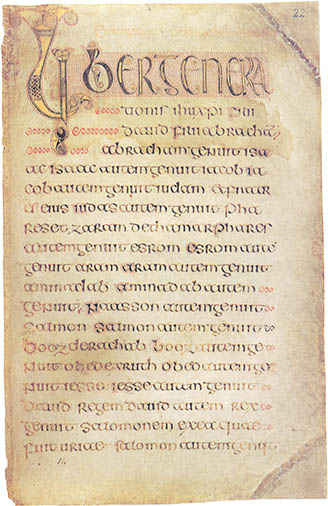 22
Liber genera
tionis ihu xpi filii
david filii abracham
abracham genuit isa
ac isaac autem genuit iacob ia
cob autem genuit iudam et fratr
es eius iudas autem genuit pha
res et zaram de thamar phares
autem genuit esrom esrom aute
genuit aram aram autem genuit
aminadab aminadab autem
genuit naasson autem genuit
salmon salmon autem genuit
booz de rachab booz autem ge
nuit obed ex ruth obed autem ge
nuit iesse iesse autem genuit
david regem david autem rex
genuit salomonem ex ea quae
fuit uriae salomon autem genuit